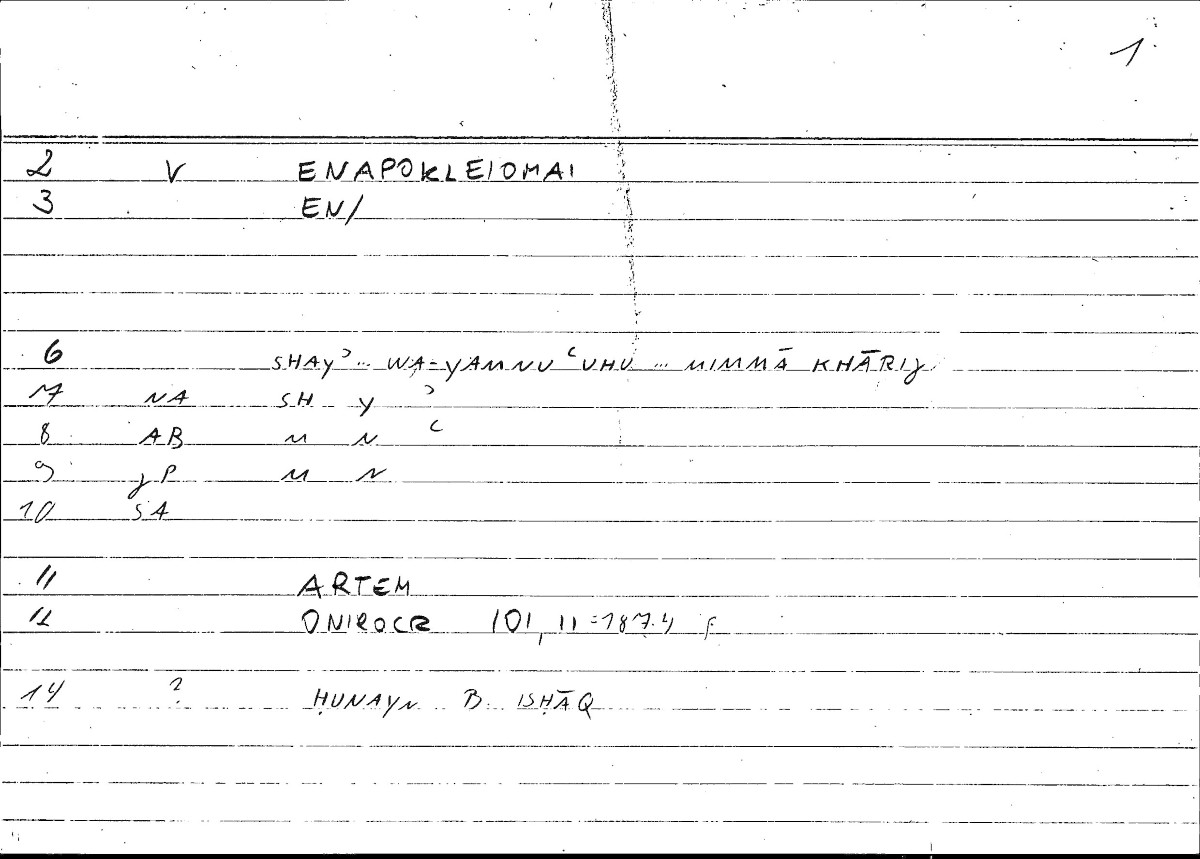 1
2 V ENAPOKLEIOMAI
3 EN/
6 SHAYʾ... WA-YAMNUʿUHU ... MIMMĀ KHĀRIJ
7 NA SH Y ʾ
8 AB M N ʿ
9 JP M N
10 SA
11 ARTEM
12 ONIROCR 101, 11 = 187.4 f
14 ? ḤUNAYN B ISḤĀQ